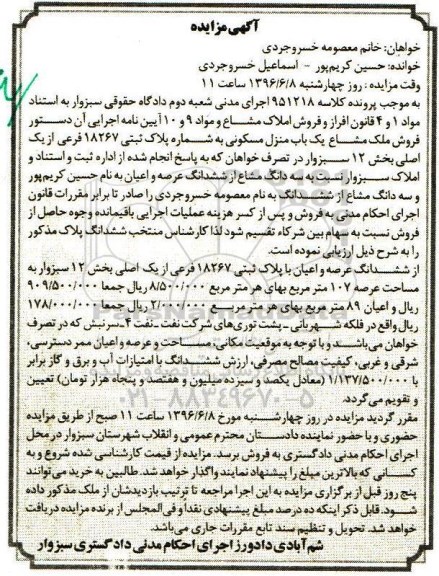 آگهی مزایده
خواهان: خانم معصومه خسروجردی
خوانده: حسین کریم‌پور - اسماعیل خسروجردی
وقت مزایده: روز چهارشنبه ۱۳۹۶/۶/۸ ساعت ۱۱
به موجب پرونده کلاسه ۹۵۱۲۱۸ اجرای مدنی شعبه دوم دادگاه حقوقی سبزوار به استناد
مواد ۱ و ۴ قانون افراز و فروش املاک مشاع و مواد ۹ و ۱۰ آیین نامه اجرایی آن دستور
فروش ملک مشاع یک باب منزل مسکونی به شماره پلاک ثبتی ۱۸۲۶۷ فرعی از یک
اصلی بخش ۱۲ سبزوار در تصرف خواهان که به پاسخ انجام شده از اداره ثبت و اسناد و
املاک سبزوار نسبت به سه دانگ مشاع از ششدانگ عرصه و اعیان به نام حسین کریم‌پور
و سه دانگ مشاع از ششدانگ به نام معصومه خسروجردی را صادر تا برابر مقررات قانون
اجرای احکام مدنی به فروش و پس از کسر هزینه عملیات اجرایی باقیمانده وجوه حاصل از
فروش نسبت به سهام بین شرکاء تقسیم شود لذا کارشناس منتخب ششدانگ پلاک مذکور
را به شرح ذیل ارزیابی نموده است.
از ششدانگ عرصه و اعیان با پلاک ثبتی ۱۸۲۶۷ فرعی از یک اصلی بخش ۱۲ سبزوار به
مساحت عرصه ۱۰۷ متر مربع بهای هر متر مربع ۸/۵۰۰/۰۰۰ ریال جمعا ۹۰۹/۵۰۰/۰۰۰
ریال و اعیان ۸۹ متر مربع بهای هر متر مربع ۲/۰۰۰/۰۰۰ ریال جمعا ۱۷۸/۰۰۰/۰۰۰
ریال واقع در فلکه شهربانی - پشت توری‌های شرکت نفت - نفت ۴ - سرنبش که در تصرف
خواهان می‌باشد و با توجه به موقعیت مکانی، مساحت و عرصه و اعیان ممر دسترسی،
شرقی و غربی، کیفیت مصالح مصرفی، ارزش ششدانگ با امتیازات آب و برق و گاز برابر
با ۱/۱۳۷/۵۰۰/۰۰۰ (معادل یکصد و سیزده میلیون و هفتصد و پنجاه هزار تومان) تعیین
و تقویم می‌گردد.
مقرر گردید مزایده در روز چهارشنبه مورخ ۱۳۹۶/۶/۸ ساعت ۱۱ صبح از طریق مزایده
حضوری و با حضور نماینده دادستان محترم عمومی و انقلاب شهرستان سبزوار در محل
اجرای احکام مدنی دادگستری به فروش برسد. مزایده از قیمت کارشناسی شده شروع و به
کسانی که بالاترین مبلغ را پیشنهاد نمایند واگذار خواهد شد. طالبین به خرید می‌توانند
پنج روز قبل از برگزاری مزایده به این اجرا مراجعه تا ترتیب بازدیدشان از ملک مذکور داده
شود. قابل ذکر اینکه ده درصد مبلغ پیشنهادی نقدا و فی‌المجلس از برنده مزایده دریافت
خواهد شد. تحویل و تنظیم سند تابع مقررات جاری می‌باشد.
شم‌آبادی دادورز اجرای احکام مدنی دادگستری سبزوار
۰۲۱-۸۸۳۴۹۶۷۰-۵